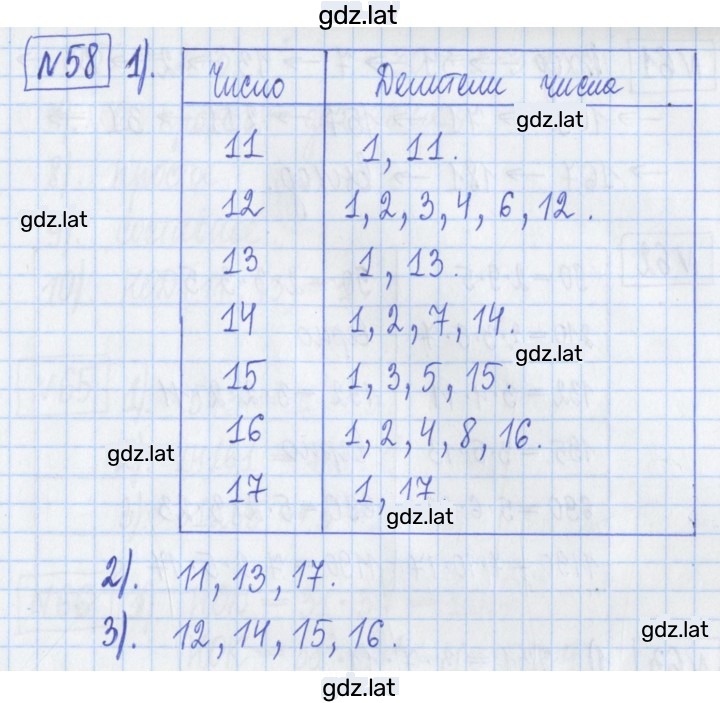 gdz.lat
№58 1). Число Делители числа
gdz.lat
11 1, 11.
gdz.lat
12 1, 2, 3, 4, 6, 12.
13 1, 13.
14 1, 2, 7, 14.
gdz.lat
15 1, 3, 5, 15.
16 1, 2, 4, 8, 16.
gdz.lat
17 1, 17
gdz.lat
2). 11, 13, 17.
3). 12, 14, 15, 16.
gdz.lat
gdz.lat